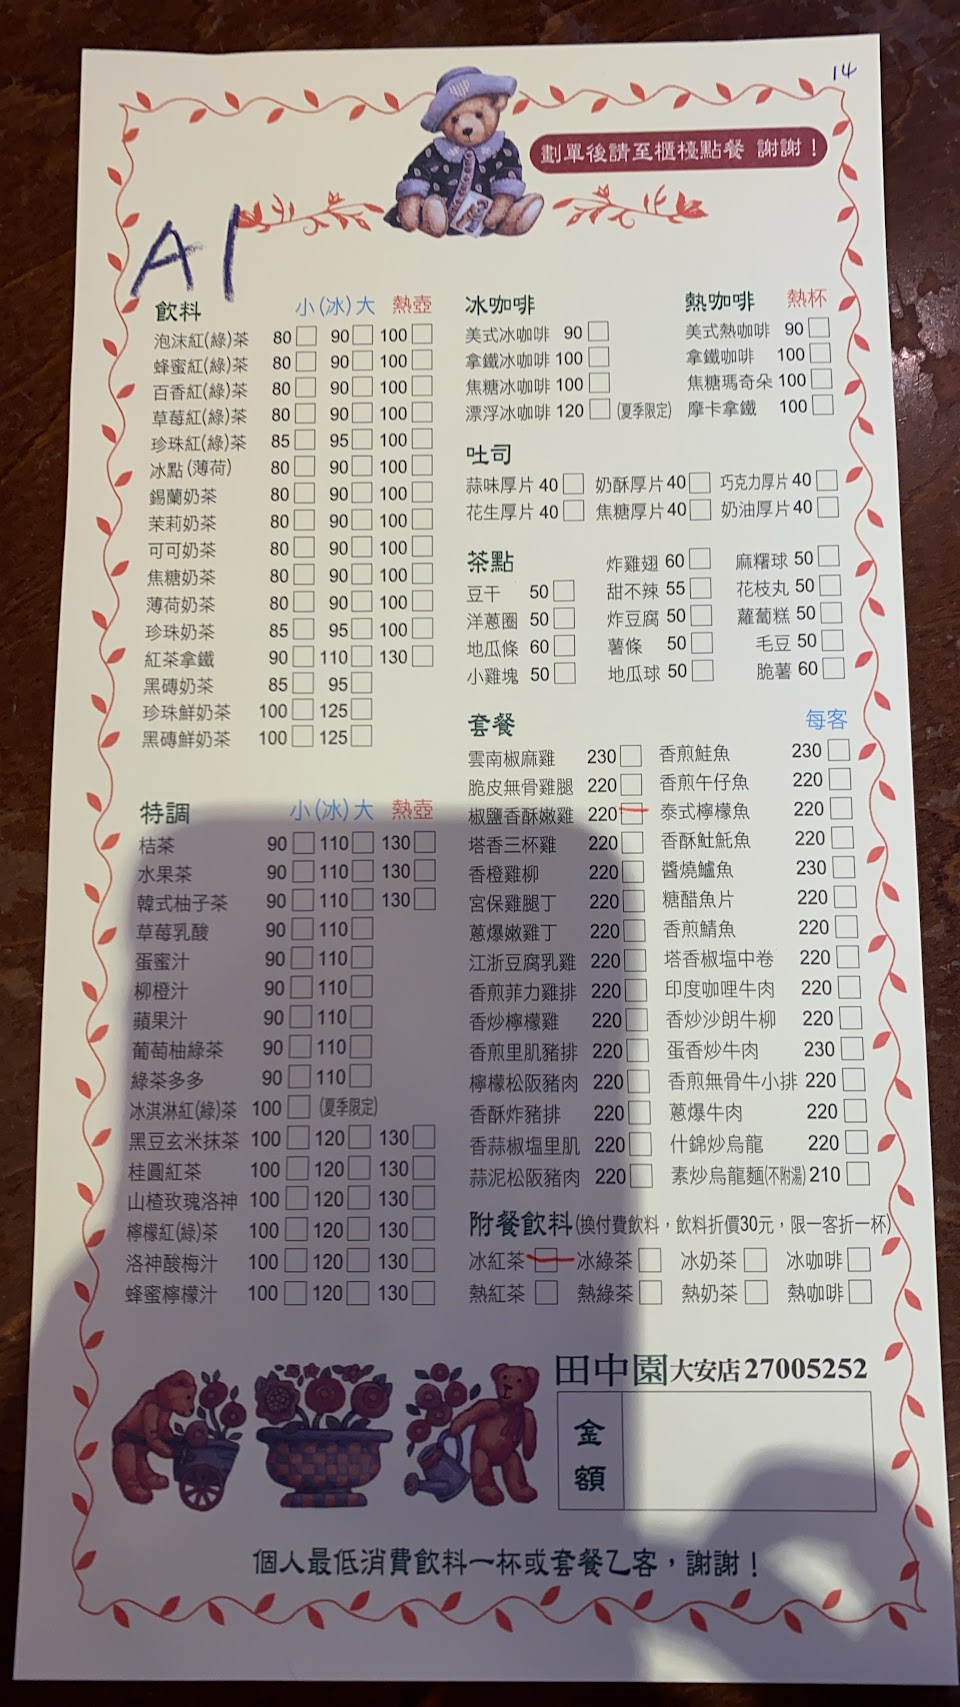 14
劃單後請至櫃檯點餐 謝謝！
A1
飲料 小(冰)大 熱壺
泡沫紅(綠)茶 80 90 100
蜂蜜紅(綠)茶 80 90 100
百香紅(綠)茶 80 90 100
草莓紅(綠)茶 80 90 100
珍珠紅(綠)茶 85 95 100
冰點(薄荷) 80 90 100
錫蘭奶茶 80 90 100
茉莉奶茶 80 90 100
可可奶茶 80 90 100
焦糖奶茶 80 90 100
薄荷奶茶 80 90 100
珍珠奶茶 85 95 100
紅茶拿鐵 90 110 130
黑磚奶茶 85 95
珍珠鮮奶茶 100 125
黑磚鮮奶茶 100 125
特調 小(冰)大 熱壺
桔茶 90 110 130
水果茶 90 110 130
韓式柚子茶 90 110 130
草莓乳酸 90 110
蛋蜜汁 90 110
柳橙汁 90 110
蘋果汁 90 110
葡萄柚綠茶 90 110
綠茶多多 90 110
冰淇淋紅(綠)茶 100 (夏季限定)
黑豆玄米抹茶 100 120 130
桂圓紅茶 100 120 130
山楂玫瑰洛神 100 120 130
檸檬紅(綠)茶 100 120 130
洛神酸梅汁 100 120 130
蜂蜜檸檬汁 100 120 130
冰咖啡
美式冰咖啡 90
拿鐵冰咖啡 100
焦糖冰咖啡 100
漂浮冰咖啡 120 (夏季限定)
熱咖啡 熱杯
美式熱咖啡 90
拿鐵咖啡 100
焦糖瑪奇朵 100
摩卡拿鐵 100
吐司
蒜味厚片 40 奶酥厚片 40 巧克力厚片 40
花生厚片 40 焦糖厚片 40 奶油厚片 40
茶點 炸雞翅 60 麻糬球 50
豆干 50 甜不辣 55 花枝丸 50
洋蔥圈 50 炸豆腐 50 蘿蔔糕 50
地瓜條 60 薯條 50 毛豆 50
小雞塊 50 地瓜球 50 脆薯 60
套餐 每客
雲南椒麻雞 230 香煎鮭魚 230
脆皮無骨雞腿 220 香煎午仔魚 220
椒鹽香酥嫩雞 220 泰式檸檬魚 220
塔香三杯雞 220 香酥𩵚魠魚 220
香橙雞柳 220 醬燒鱸魚 230
宮保雞腿丁 220 糖醋魚片 220
蔥爆嫩雞丁 220 香煎鯖魚 220
江浙豆腐乳雞 220 塔香椒塩中卷 220
香煎菲力雞排 220 印度咖哩牛肉 220
香炒檸檬雞 220 香炒沙朗牛柳 220
香煎里肌豬排 220 蛋香炒牛肉 230
檸檬松阪豬肉 220 香煎無骨牛小排 220
香酥炸豬排 220 蔥爆牛肉 220
香蒜椒塩里肌 220 什錦炒烏龍 220
蒜泥松阪豬肉 220 素炒烏龍麵(不附湯) 210
附餐飲料(換付費飲料，飲料折價30元，限一客折一杯)
冰紅茶 冰綠茶 冰奶茶 冰咖啡
熱紅茶 熱綠茶 熱奶茶 熱咖啡
田中園 大安店 27005252
金額
個人最低消費飲料一杯或套餐乙客，謝謝！